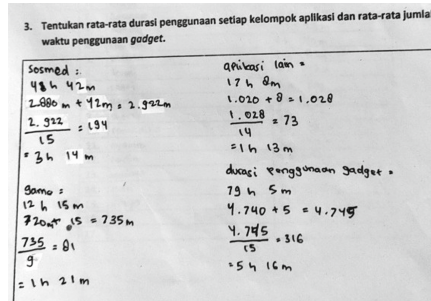 3. Tentukan rata-rata durasi penggunaan setiap kelompok aplikasi dan rata-rata jumla
waktu penggunaan gadget.
Sosmed :
48 h 42m
2.880 m + 42m = 2.922m
2.922
15
= 194
= 3h 14 m
Game :
12 h 15m
720m + 15 = 735m
735
9
= 81
= 1h 21m
aplikasi lain =
17 h 8m
1.020 + 8 = 1.028
1.028
14
= 73
= 1h 13m
durasi penggunaan gadget =
79 h 5m
4.740 + 5 = 4.745
4.745
15
= 316
= 5h 16m